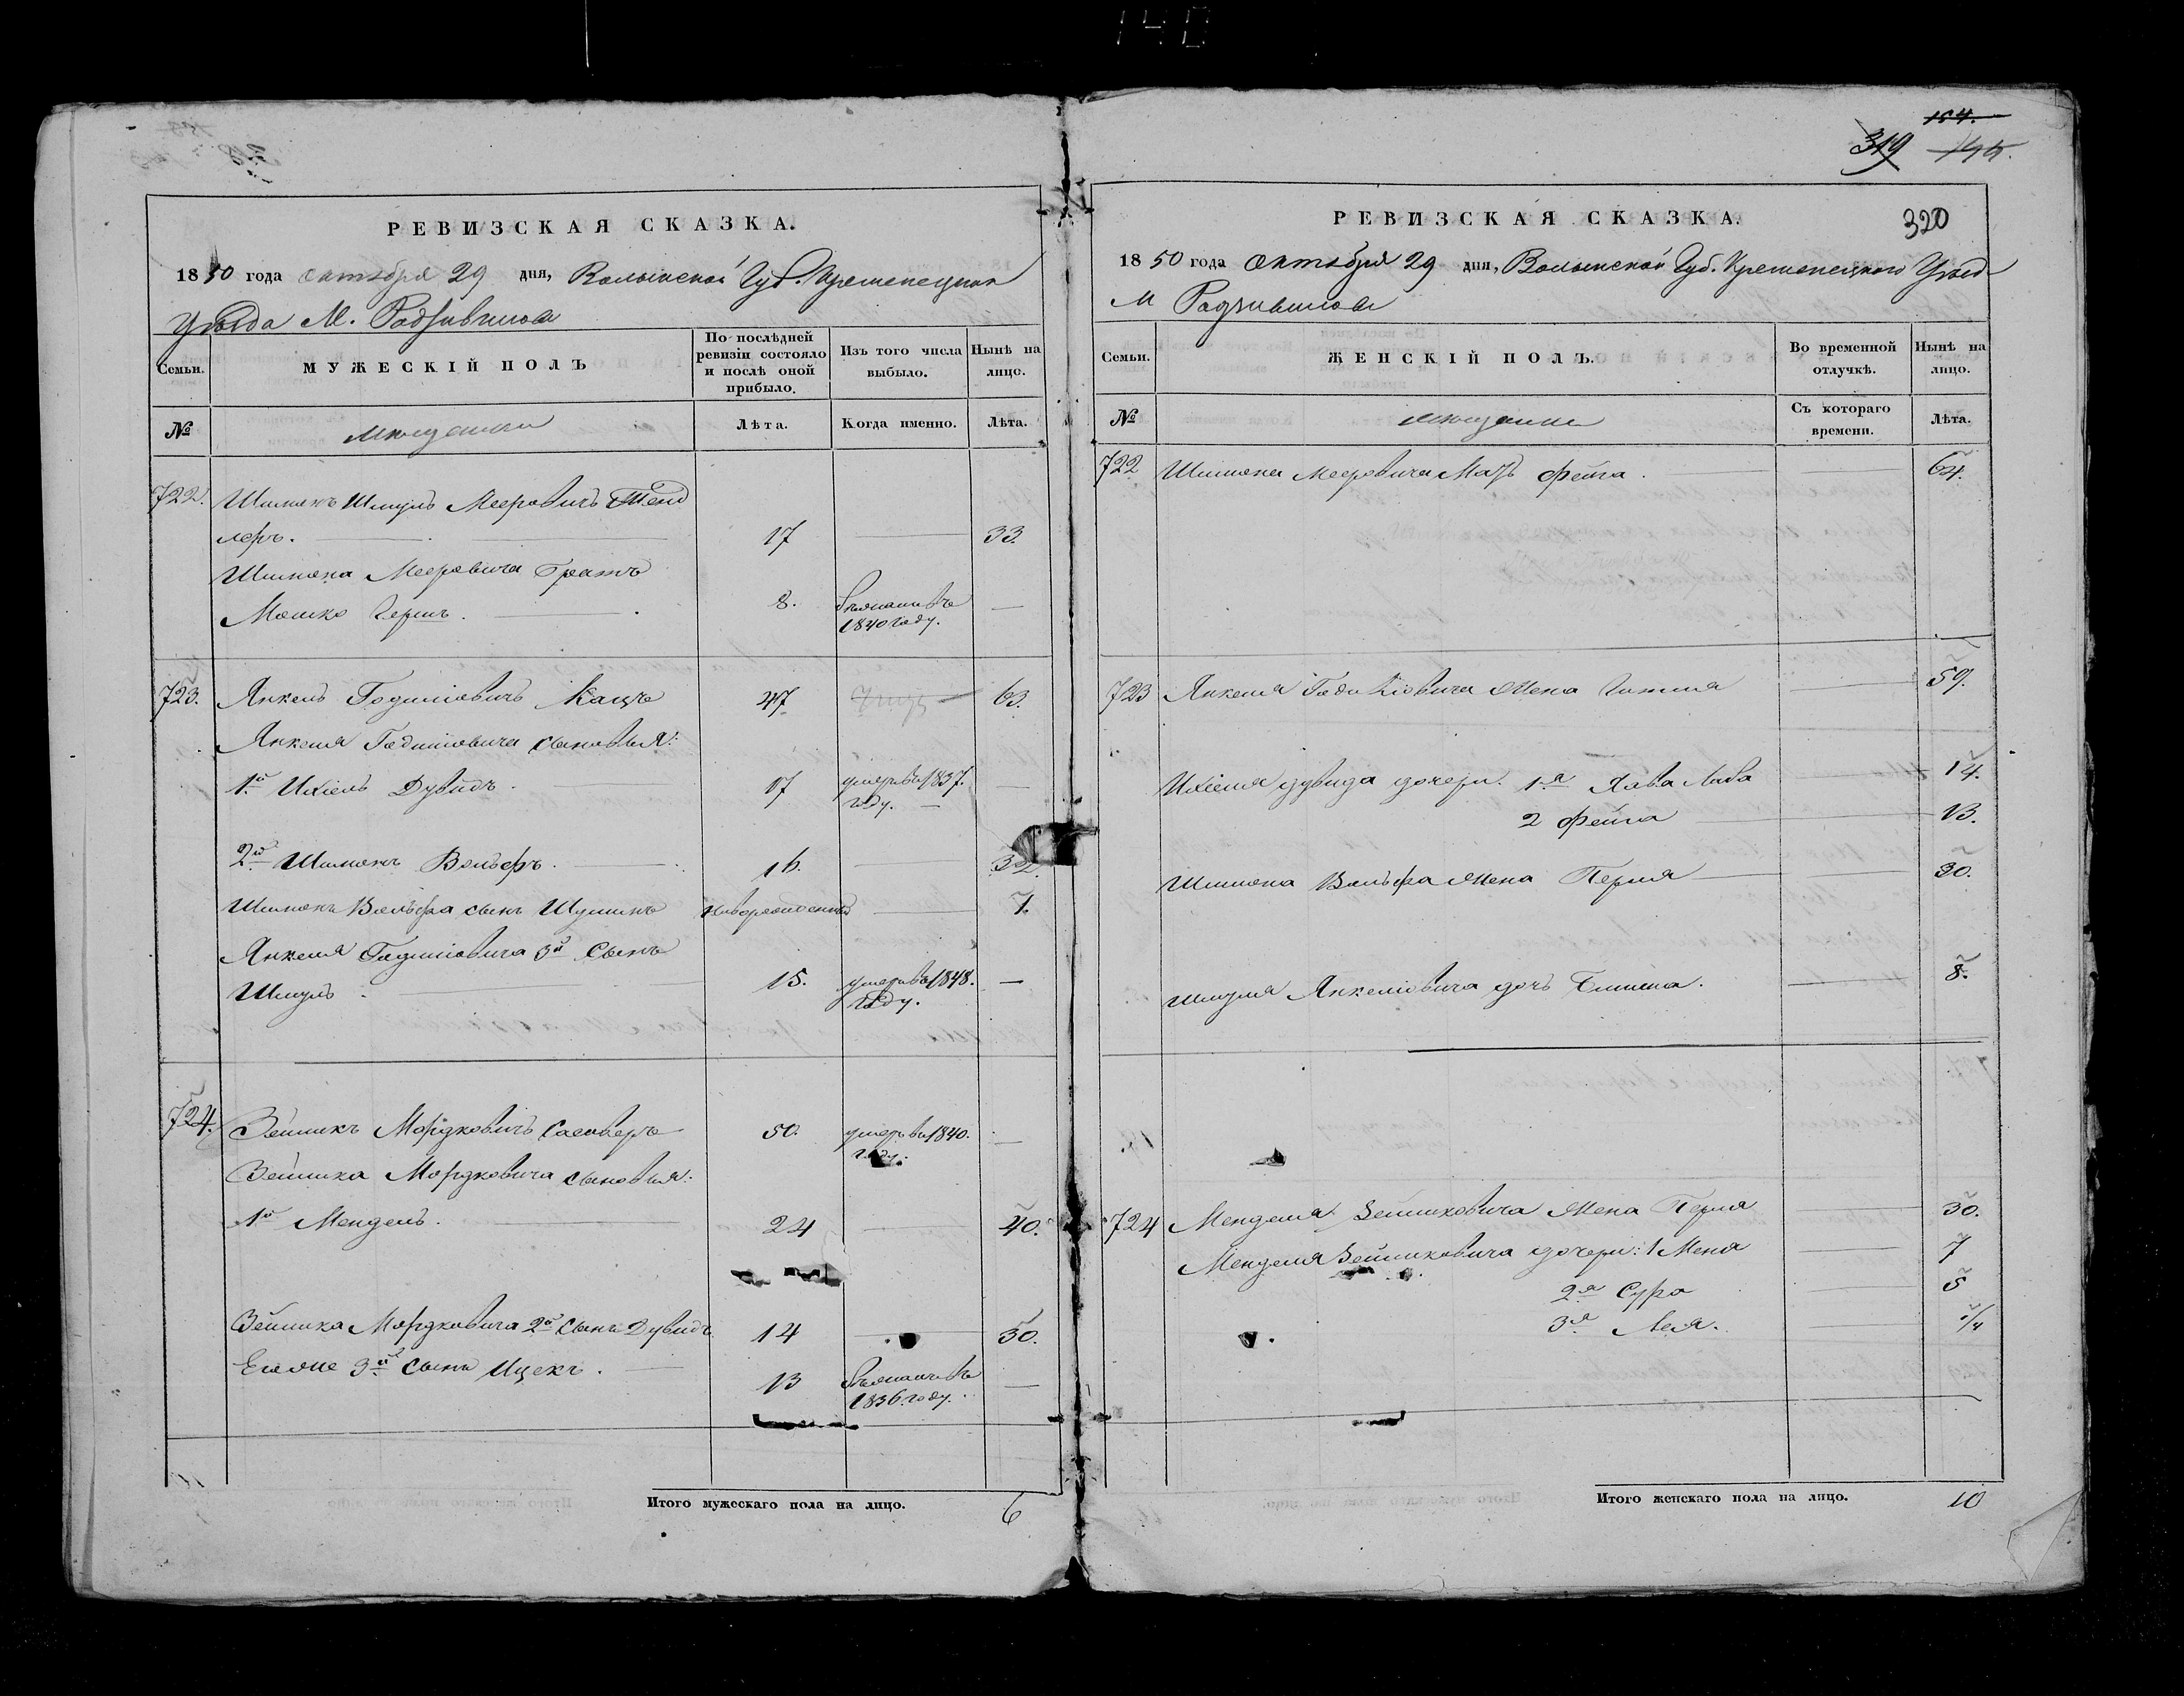 140
РЕВИЗСКАЯ СКАЗКА.
1850 года октября 29 дня, Волынской Губ. Кременецкаго
Уѣзда М. Радзивилова
Семьи.
МУЖЕСКІЙ ПОЛЪ
По послѣдней ревизіи состояло и послѣ оной прибыло.
Изъ того числа выбыло.
Нынѣ на лицо.
№
мѣщане
Лѣта.
Когда именно.
Лѣта.
722. Шимонъ Шмуль Мееровичъ
леръ. 17 33.
Шимона Мееровича братъ
Мошко Гершъ. 8. 1840 году.
723. Янкель Годиліовичъ Кацъ 47 63.
Янкеля Годиліовича сыновья:
1й Ихіель Дувидъ 17 умеръ въ 1837. году.
2й Шимонъ Вольфъ. 16. 32.
Шимонъ Вольфа сынъ Шулимъ новорожденный 7.
Янкеля Годиліовича 3й сынъ
Шмуль 15. умеръ въ 1848. году.
724. Зейликъ Мордковичъ 50. умеръ въ 1840. году.
Зейлика Мордковича сыновья:
1й Мендель. 24 40.
Зейлика Мордковича 2й сынъ Дувидъ 14 30.
Его же 3й сынъ Ицекъ. 13 1836 году.
Итого мужескаго пола на лицо. 6
154.
319
320
РЕВИЗСКАЯ СКАЗКА.
1850 года октября 29 дня, Волынской Губ. Кременецкаго Уѣзд
М Радзивилова
Семьи.
ЖЕНСКІЙ ПОЛЪ.
Во временной отлучкѣ.
Нынѣ на лицо.
№
мѣщане
Съ котораго времени.
Лѣта.
722 Шимона Мееровича Мать Фейга. 64.
723 Янкеля Годиліовича жена Гитля 59.
Ихіеля Дувида дочери. 1я Хава Либа 14.
2 Фейга 13.
Шимона Вольфа жена Перля 30.
Шмуля Янкеліовича дочь Блима. 8.
724 Менделя Зейликовича жена Перля 30.
Менделя Зейликовича дочери: 1 Меня 7
2я Сура 5
3я Лея.
Итого женскаго пола на лицо. 10